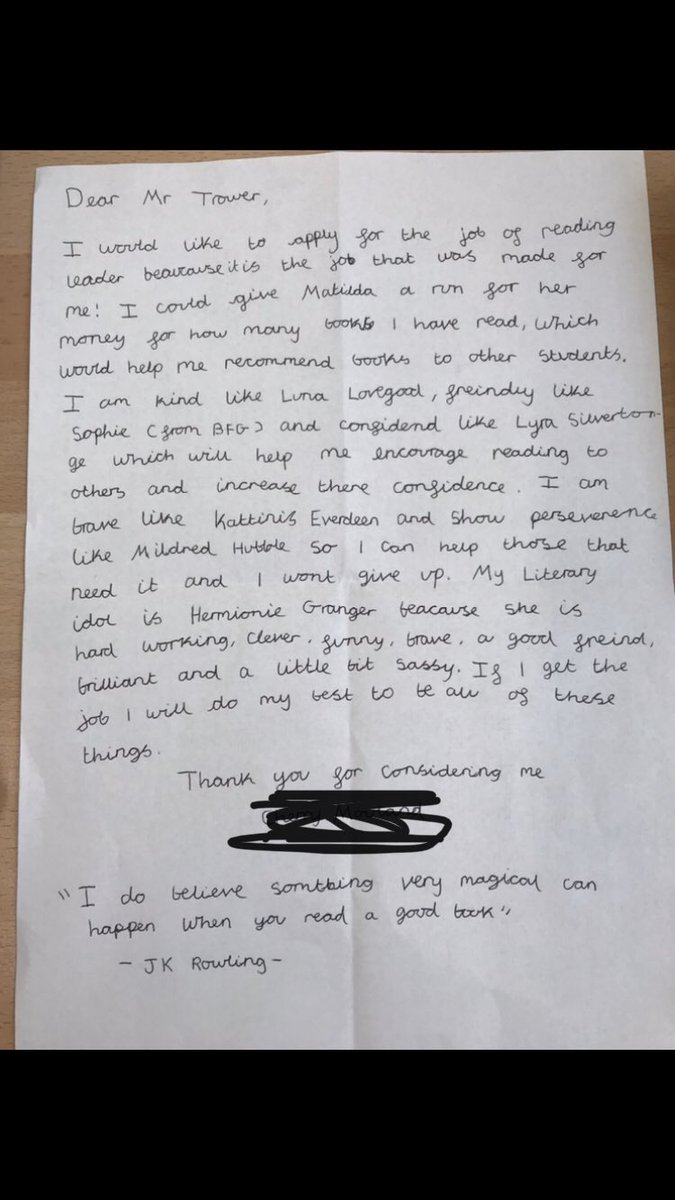 Dear Mr Trower,
I would like to apply for the job of reading
leader beacauseitis the job that was made for
me! I could give Matilda a run for her
money for how many books I have read, which
would help me recommend books to other students.
I am kind like Luna Lovegood, freindly like
Sophie (from BFG) and confidend like Lyra Silverton-
ge which will help me encourage reading to
others and increase there confidence. I am
brave like Kattinis Everdeen and show perseverence
like Mildred Hubble so I can help those that
need it and I wont give up. My Literary
idol is Hermionie Granger beacause she is
hard working, clever, funny, brave, a good freind,
brilliant and a little bit sassy. If I get the
job I will do my best to be all of these
things.
Thank you for considering me
"I do believe somthing very magical can
happen when you read a good book"
- JK Rowling -